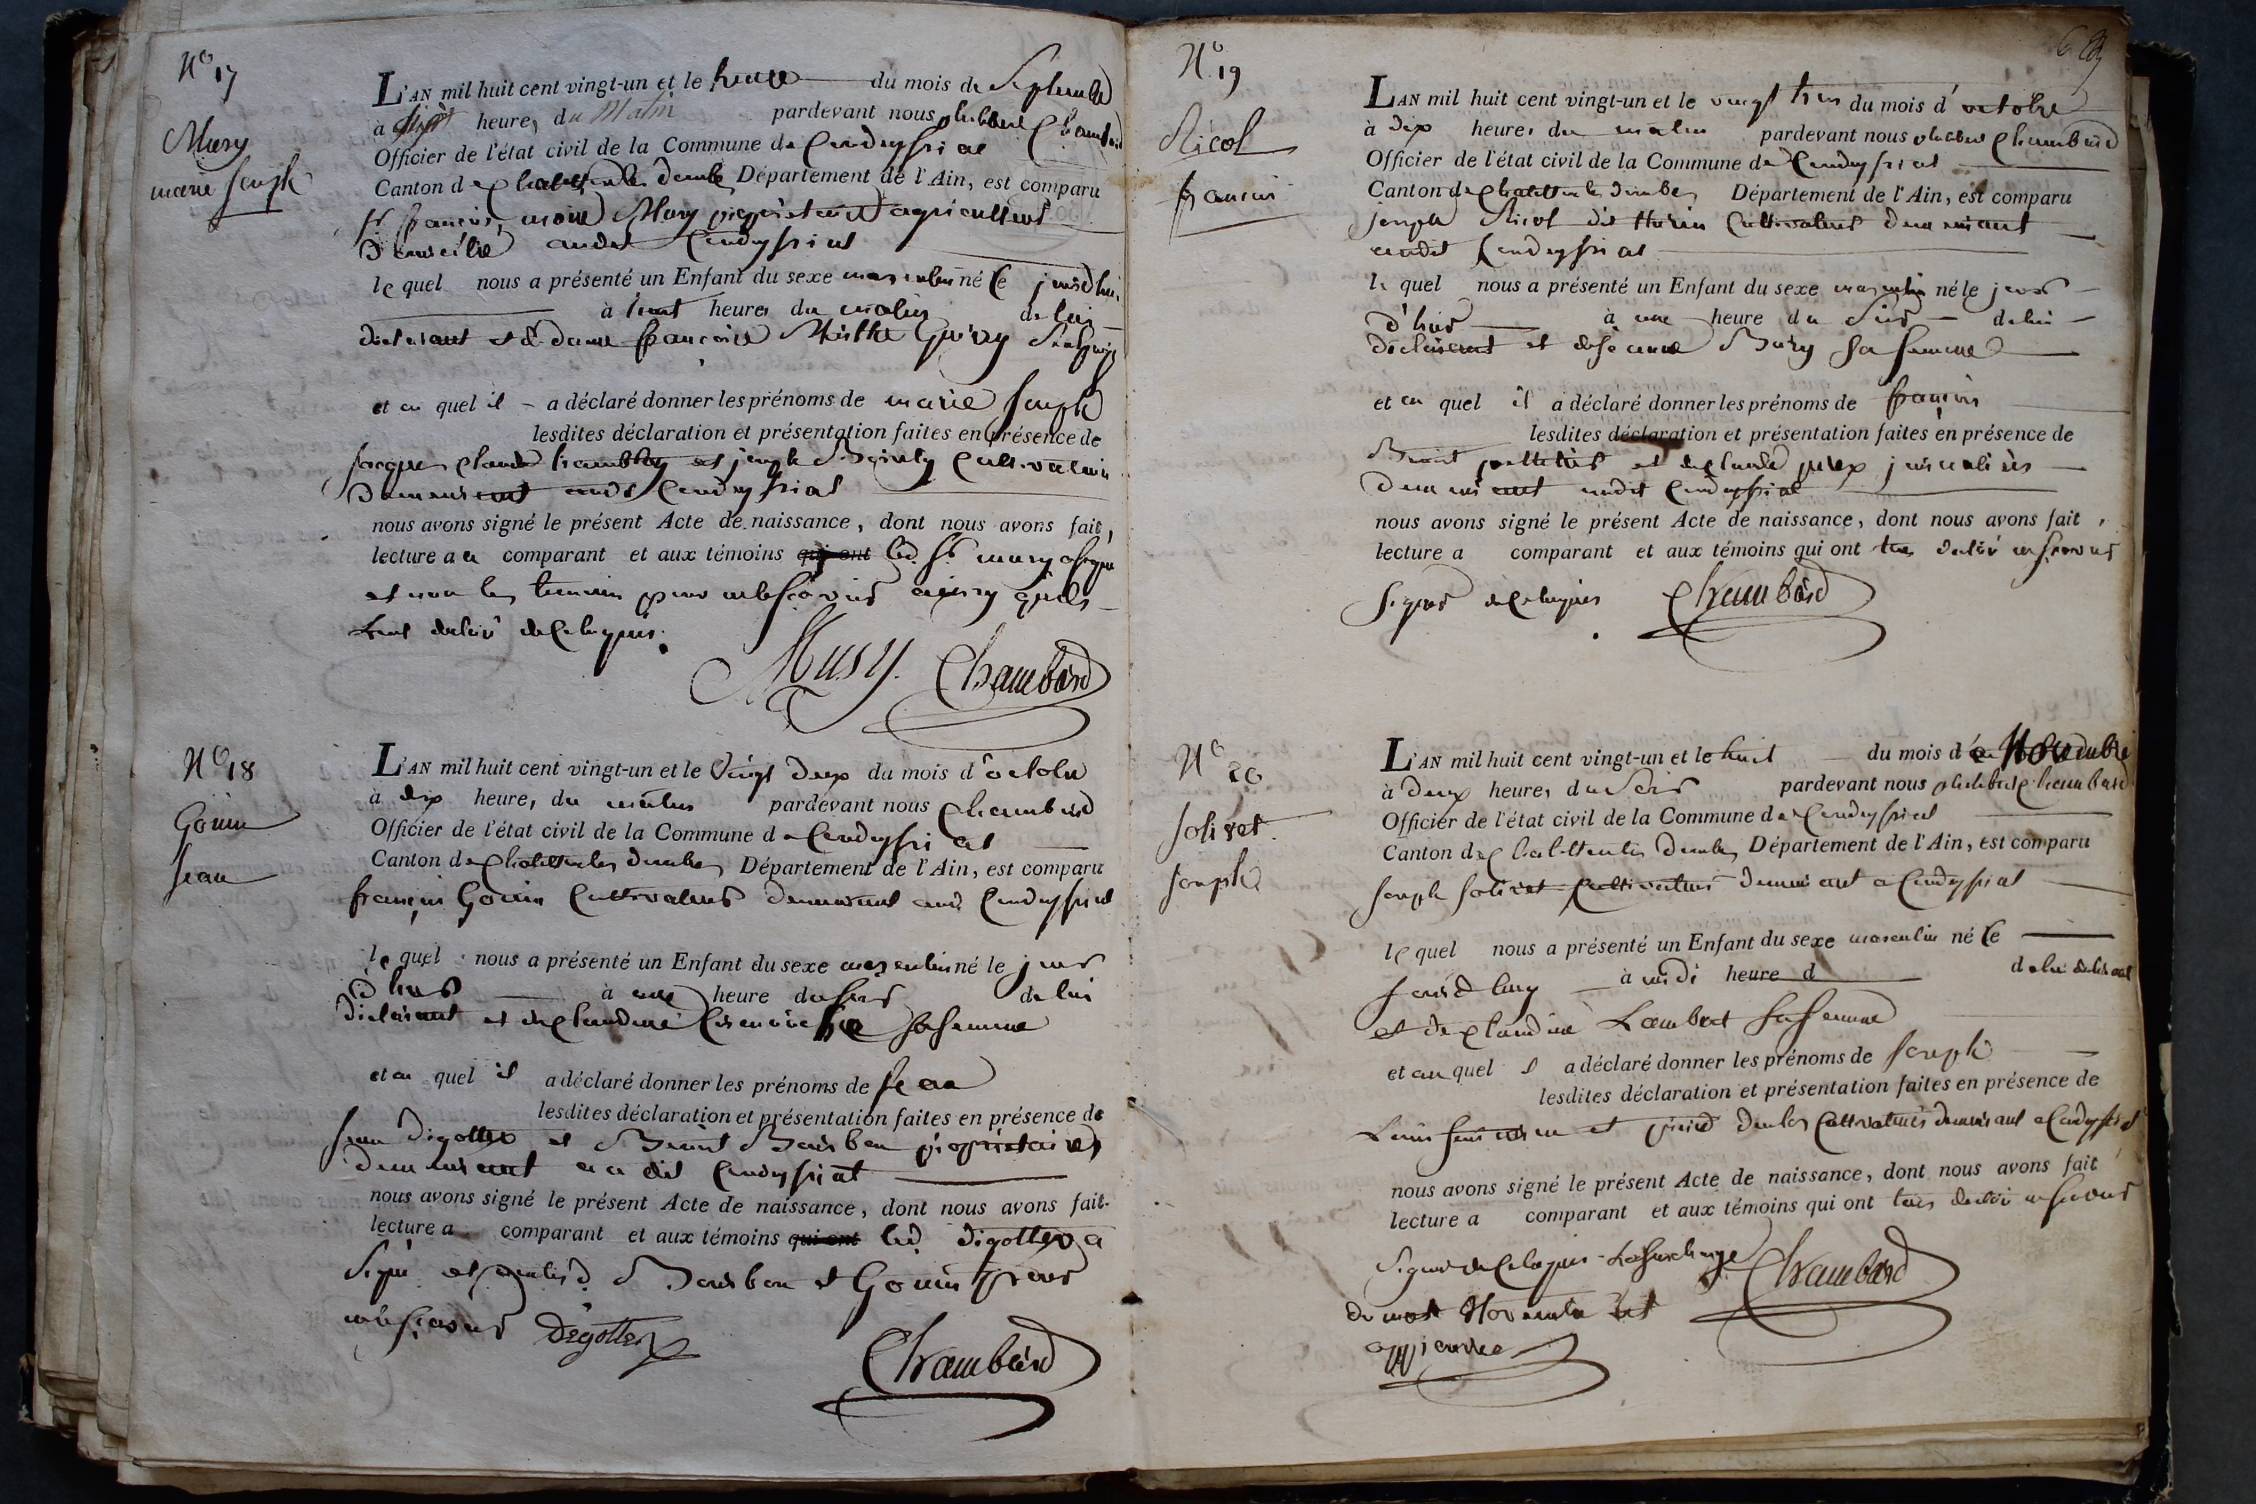 N° 17
Musy
marie Joseph
L'AN mil huit cent vingt-un et le trente du mois de Septembre
à heures du Matin pardevant nous philibert Chambard
Officier de l'état civil de la Commune de Condeyssiat
Canton de Chatillon les dombes Département de l'Ain, est comparu
Sr françois, Musy propriétaire agriculteur
domicilié audit Condeyssiat
le quel nous a présenté un Enfant du sexe masculin né ce jourdhui
à heures du matin de lui
déclarant et de dame françoise
et au quel il a déclaré donner les prénoms de marie Joseph
lesdites déclaration et présentation faites en présence de
Jacques Claude et joseph cultivateurs
demeurant audt Condeyssiat
nous avons signé le présent Acte de naissance, dont nous avons fait,
lecture au comparant et aux témoins qui ont led. Sr. musy a signé
et non les temoins pour ne le sçavoir ainsy qu'ils
l'ont déclaré de ce enquis.
Musy. Chambard
N° 18
Gouin
Jean
L'AN mil huit cent vingt-un et le vingt deux du mois d'octobre
à dix heures du matin pardevant nous Chambard
Officier de l'état civil de la Commune de Condeyssiat
Canton de Chatillon les dombes Département de l'Ain, est comparu
françois Gouin Cultivateur demeurant aud. Condeyssiat
le quel nous a présenté un Enfant du sexe masculin né le jour
d'hier à une heure du soir de lui
déclarant et de Claudine sa femme
et au quel il a déclaré donner les prénoms de Jean
lesdites déclaration et présentation faites en présence de
Jean Digottex et Benoit Bourbon propriétaires
demeurant au dit Condeyssiat
nous avons signé le présent Acte de naissance, dont nous avons fait
lecture a comparant et aux témoins qui ont led. digottex a
signé et non led. Bourbon et Gouin pour
ne le sçavoir Digottex
Chambard
N° 19
Nicol
françois
L'AN mil huit cent vingt-un et le vingt trois du mois d'octobre
à dix heures du matin pardevant nous philibert Chambard
Officier de l'état civil de la Commune de Condeyssiat
Canton de Chatillon les dombes Département de l'Ain, est comparu
joseph Nicol dit cultivateur demeurant
audit Condeyssiat
le quel nous a présenté un Enfant du sexe masculin né le jour
d'hier à une heure du soir de lui
déclarant et de jeanne Bury sa femme
et au quel il a déclaré donner les prénoms de françois
lesdites déclaration et présentation faites en présence de
Benoit et de Claude journaliers
demeurant audit Condeyssiat
nous avons signé le présent Acte de naissance, dont nous avons fait,
lecture a comparant et aux témoins qui ont tous déclaré ne sçavoir
signer de ce enquis Chambard
N° 20
Solivet
Joseph
L'AN mil huit cent vingt-un et le huit du mois de Novembre
à deux heures du soir pardevant nous philibert Chambard
Officier de l'état civil de la Commune de Condeyssiat
Canton de Chatillon les dombes Département de l'Ain, est comparu
Joseph Solivet Cultivateur demeurant a Condeyssiat
le quel nous a présenté un Enfant du sexe masculin né ce
jourdhuy à midi heure d de lui déclarant
et de Claudine Lambert sa femme
et au quel il a déclaré donner les prénoms de Joseph
lesdites déclaration et présentation faites en présence de
Louis et cultivateurs demeurant a Condeyssiat
nous avons signé le présent Acte de naissance, dont nous avons fait
lecture a comparant et aux témoins qui ont tous déclaré ne sçavoir
signer de ce enquis - La surcharge Chambard
du mot Novembre est
approuvée